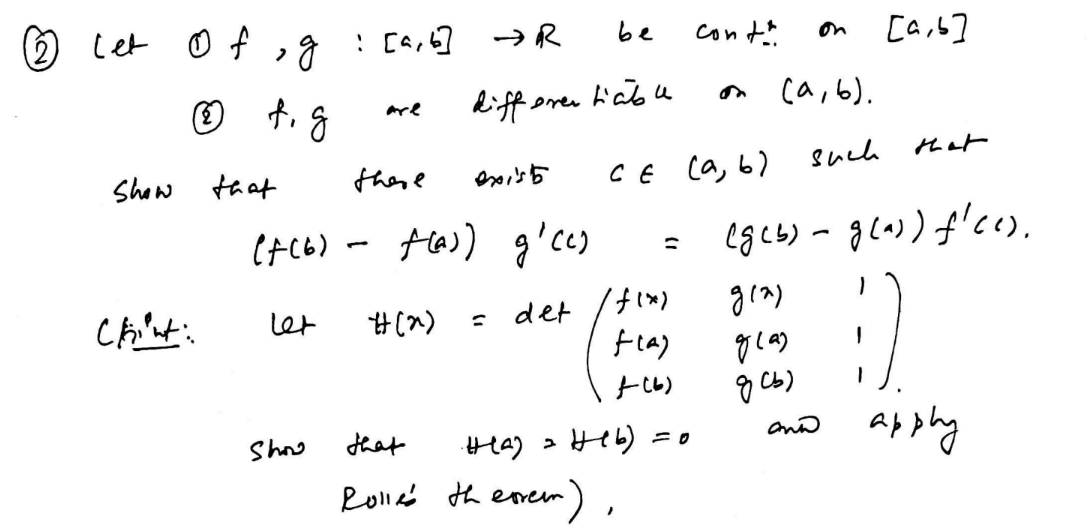 ② Let ① f, g : [a,b] → R be cont⁠s. on [a,b]
② f, g are differentiable on (a,b).
Show that there exists c ∈ (a,b) such that
(f(b) - f(a)) g'(c) = (g(b) - g(a)) f'(c).
(Hint: Let H(x) = det ( f(x) g(x) 1
f(a) g(a) 1
f(b) g(b) 1 ).
Show that H(a) = H(b) = 0 and apply
Rolle's theorem).